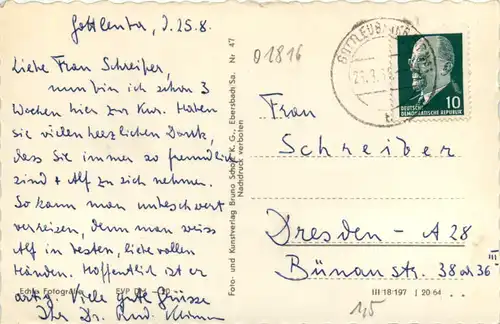 Gottleuba, d. 25.8.
Liebe Frau Schreiber,
nun bin ich schon 3
Wochen hier zur Kur. Haben
sie vielen herzlichen Dank,
dass Sie immer so freundlich
sind + Alf zu sich nehmen.
So kann man unbeschwert
verreisen, denn man weiss
Alf in besten, liebevollen
Händen. Hoffentlich ist er
artig. Viele gute Grüsse
Ihr Dr. Rud.
Echte Fotografie EVP DM -.20
Foto- und Kunstverlag Bruno Scholz K. G., Ebersbach/Sa. Nr 47
Nachdruck verboten
01816
10
DEUTSCHE
DEMOKRATISCHE REPUBLIK
Frau
Schreiber
Dresden - A 28
Bünaustr. 38 od. 36 III
III 18 197 J 20 64
1,5